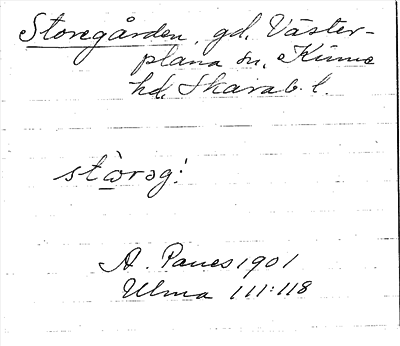 Storegården, gd, Väster-
plana sn, Kinne
hd, Skarab. l.
stòrəg:
A. Paues 1901
Ulma 111:118